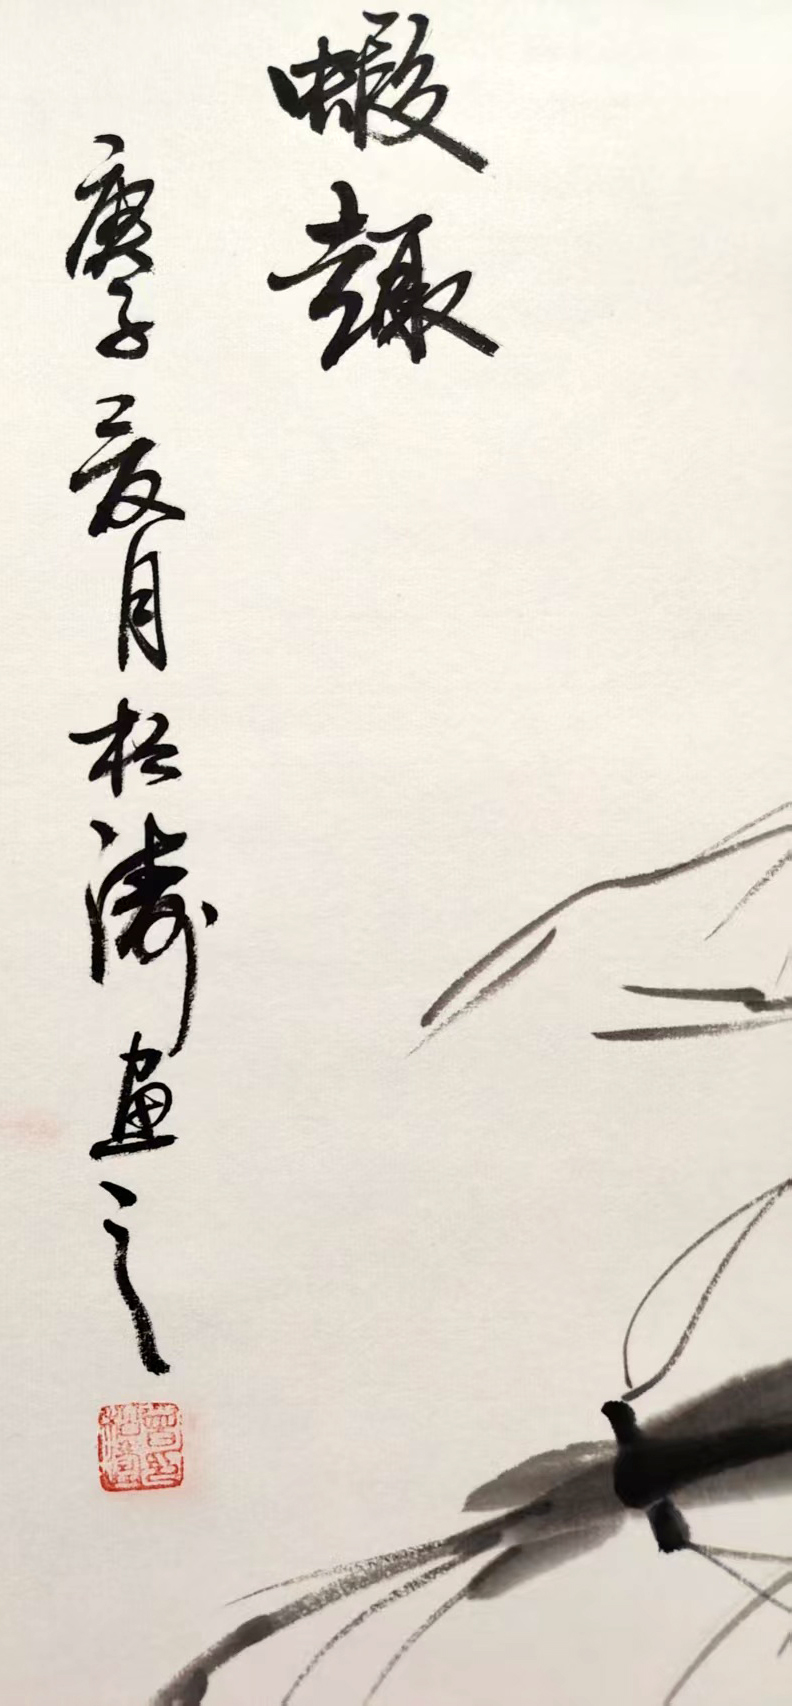 蝦趣
庚子夏月松濤畫之